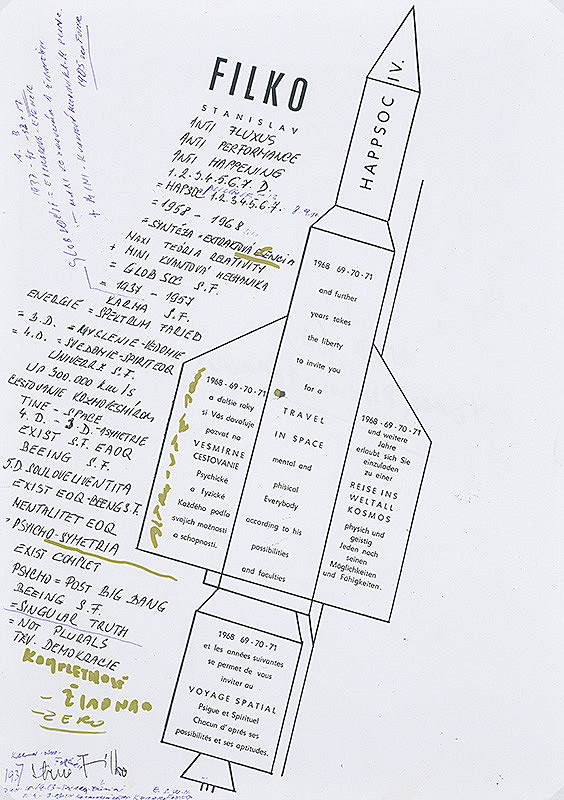 FILKO
STANISLAV
ANTI FLUXUS
ANTI PERFORMANCE
ANTI HAPPENING
1.2.3.4.5.6.7. D.
= HAPSOC 1.2.3.4.5.6.7.
= 1958 - 1968
= SYNTÉZA = EXTRAKTOVÁ ESENCIA
MAXI TEÓRIA RELATIVITY
+ MINI KVANTOVÁ MECHANIKA
= GLOB SOC S.F.
= 1937 - 1957
KARMA S.F.
ENERGIE = SPEKTRUM FARIEB
= 3.D. = MYSLENIE - VEDOMIE
= 4.D. = SVEDOMIE - SPIRIT EOQ
UNIVERZ S.F.
UP 300.000 km/s
CESTOVANIE KOZMOVESMÍROM
TIME - SPACE
4.D. - 3.D. - ASYMETRIE
EXIST S.F. EAOQ
BEEING S.F.
5.D. SOULOVEUVENTITA
EXIST EOQ - BEENG S.F.
MENTALITET EOQ
PSYCHO - SYMETRIA
EXIST COMPLET
PSYCHO = POST BIG BANG
BEEING S.F.
= SINGULAR TRUTH
= NOT PLURALS
TRV. DEMOKRACIE
KOMPLETNOSŤ
- ŽIADNA O
- ZERO
1937
Filko
HAPPSOC IV.
1968 69 - 70 - 71
and further
years takes
the liberty
to invite you
for a
TRAVEL
IN SPACE
mental and
phisical
Everybody
according to his
possibilities
and faculties
1968 - 69 - 70 - 71
a ďalšie roky
si Vás dovoľuje
pozvať na
VESMÍRNE
CESTOVANIE
Psychické
a fyzické
Každého podľa
svojich možností
a schopností.
1968 69 - 70 - 71
und weitere
Jahre
erlaubt sich Sie
einzuladen
zu einer
REISE INS
WELTALL
KOSMOS
physich und
geistig
Jeden nach
seinen
Möglichkeiten
und Fähigkeiten.
1968 69 - 70 - 71
et les années suivantes
se permet de vous
inviter au
VOYAGE SPATIAL
Psigue et Spirituel
Chacun d'après ses
possibilités et ses aptitudes.